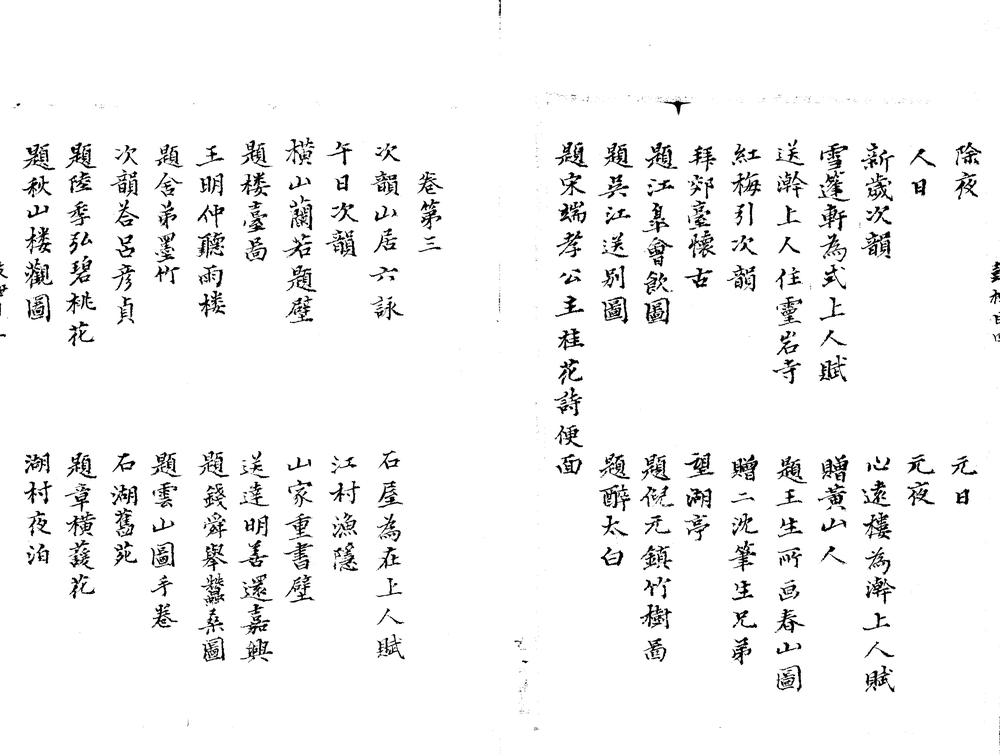 除夜　元日
人日　元夜
新歲次韻　心遠樓為澣上人賦
雪篷軒為式上人賦　贈黃山人
送澣上人住靈岩寺　題王生所画春山圖
紅梅引次韻　贈二沈筆生兄弟
拜郊臺懷古　望湖亭
題江皋會飲圖　題倪元鎮竹樹啚
題吳江送別圖　題醉太白
題宋端孝公主桂花詩便面
卷第三
次韻山居六詠　石屋為在上人賦
午日次韻　江村漁隱
橫山蘭若題壁　山家重書壁
題楼臺啚　送達明善還嘉興
王明仲聽雨楼　題錢舜舉蠶桑圖
題舍弟墨竹　題雲山圖手卷
次韻荅呂彥貞　石湖舊苑
題陸季弘碧桃花　題章橫蕿花
題秋山楼觀圖　湖村夜泊